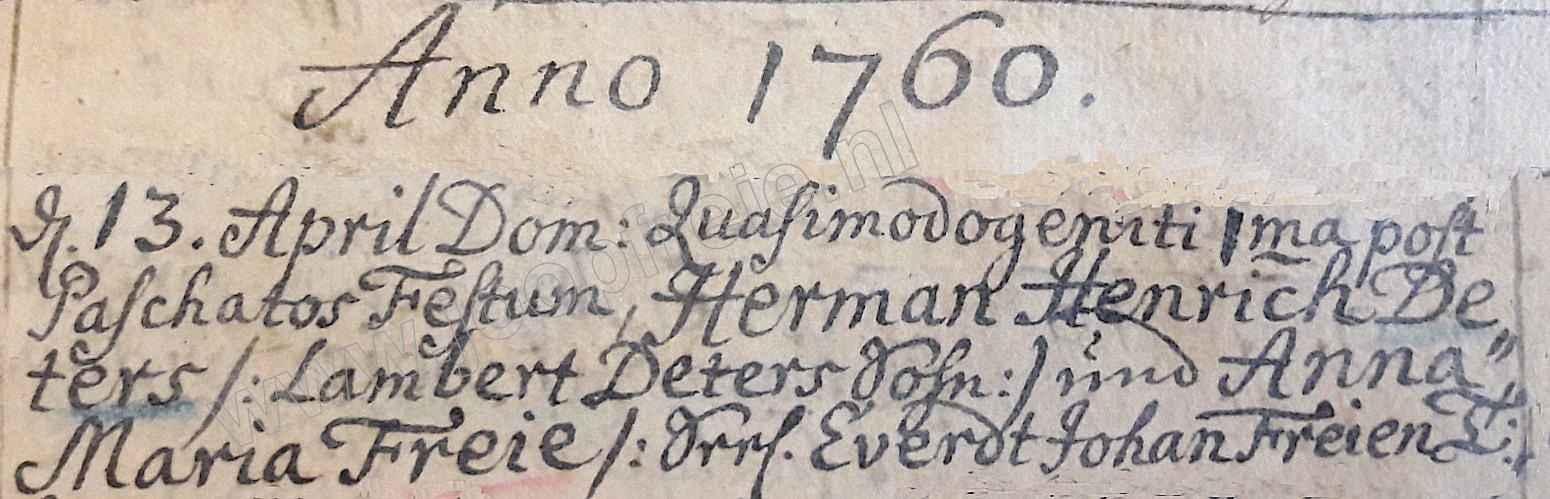 Anno 1760.
d. 13. April Dom: Quasimodogeniti 1ma post
Paschatos Festum, Herman Henrich De„
ters /: Lambert Deters Sohn :/ und Anna„
Maria Freie /: Everdt Johan Freien T:/
www.joopfreie.nl